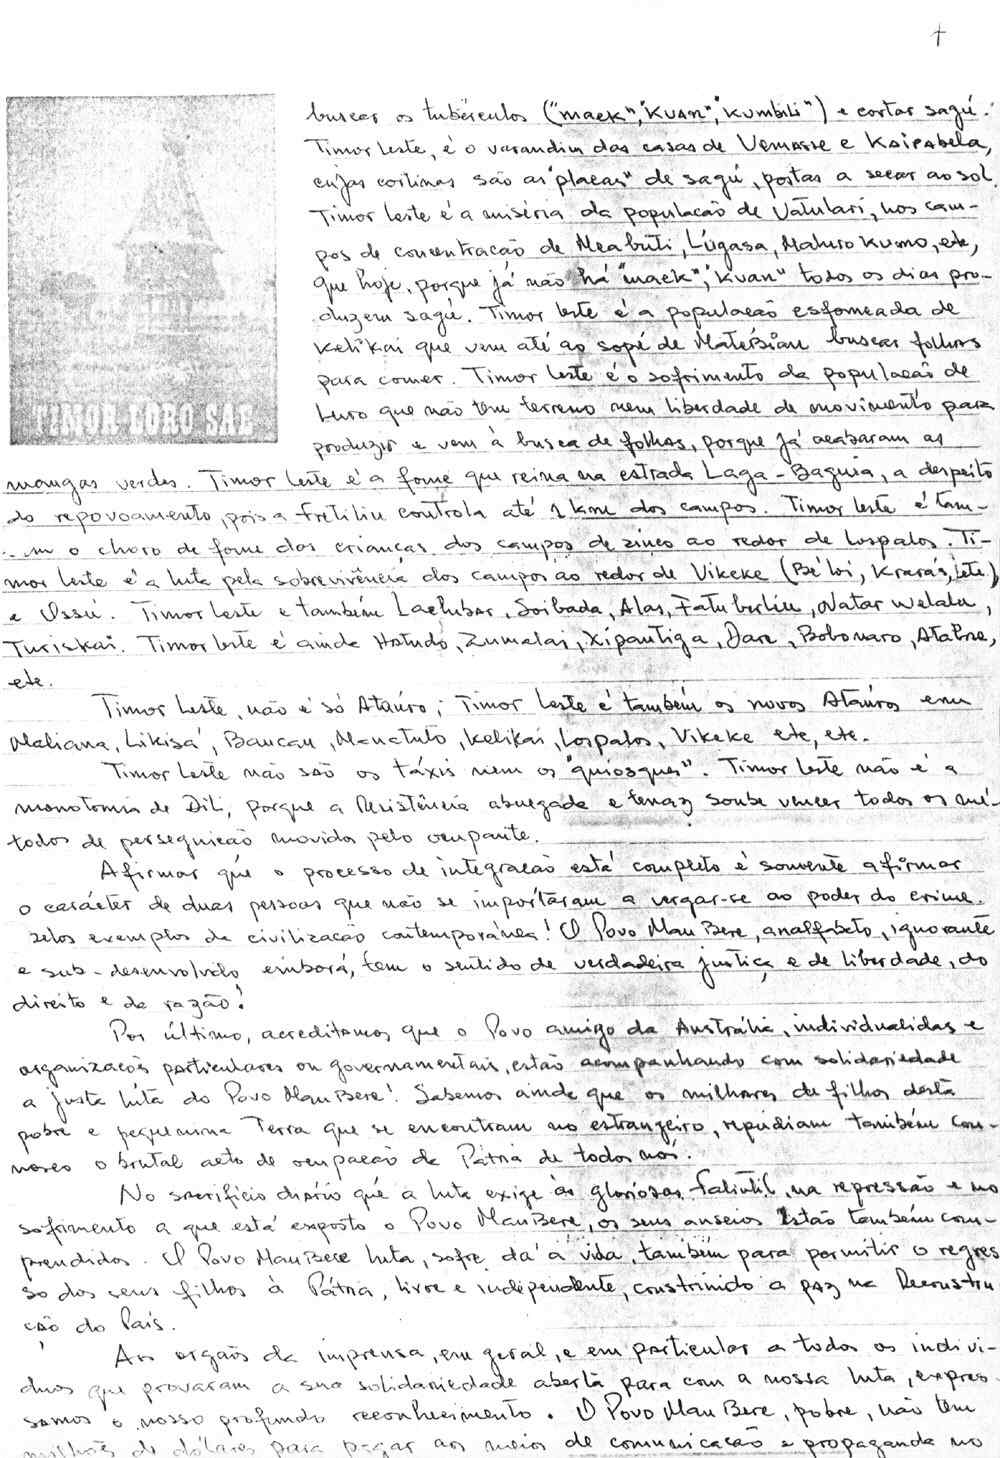 buscar os tubérculos ("maek", "Kuan", "Kumbili") e cortar sagú.
Timor Leste, é o varandim das casas de Vemasse e Kaipabela,
cujas cortinas são as "placas" de sagú, postas a secar ao sol.
Timor Leste é a miséria da população de Vatulari, nos cam-
pos de concentração de Meabuti, Lugasa, Maluro Kumo, etc,
que hoje, porque já não há "maek", "Kuan" todos os dias pro-
duzem sagú. Timor Leste é a população esfomeada de
Kelikai que vem até ao sopé de Matebian buscar folhas
para comer. Timor Leste é o sofrimento da população de
Luro que não tem terreno nem liberdade de movimento para
produzir e vem à busca de folhas, porque já acabaram as
TIMOR LORO SAE
mangas verdes. Timor Leste é a fome que reina na estrada Laga-Baguia, a despeito
do repovoamento, pois a Fretilin controla até 1 km dos campos. Timor Leste é tam-
o choro de fome das crianças dos campos de zinco ao redor de Lospalos. Ti-
mor Leste é a luta pela sobrevivência dos campos ao redor de Vikeke (Be'loi, Kraras, etc)
e Ossú. Timor Leste é também Laclubar, Soibada, Alas, Fatuberliu, Natar Welalu,
Turiskai. Timor Leste é ainda Hatudo, Zumalai, Xipautiga, Dare, Bobonaro, Atabae,
etc.
Timor Leste, não é só Ataúro; Timor Leste é também os novos Ataúros em
Maliana, Likisá, Baucau, Manatuto, Kelikai, Lospalos, Vikeke etc, etc.
Timor Leste não são os táxis nem os "quiosques". Timor Leste não é a
monotomia de Dili, porque a Resistência abnegada e tenaz soube vencer todos os mé-
todos de perseguição movidos pelo ocupante.
Afirmar que o processo de integração está completo é somente afirmar
o carácter de duas pessoas que não se importaram a vergar-se ao poder do crime.
Belos exemplos de civilização contemporânea! O Povo MauBere, analfabeto, ignorante
e sub-desenvolvido embora, tem o sentido de verdadeira justiça e de liberdade, do
direito e da razão!
Por último, acreditamos que o Povo amigo da Austrália, individualidas e
organizacões particulares ou governamentais, estão acompanhando com solidariedade
a justa luta do Povo MauBere! Sabemos ainda que os milhares de filhos desta
pobre e pequenina Terra que se encontram no estrangeiro, repudiam também con-
nosco o brutal acto de ocupação da Pátria de todos nós.
No sacrifício diário que a luta exige às gloriosas Falintil, na repressão e no
sofrimento a que está exposto o Povo MauBere, os seus anseios estão também com-
preendidos. O Povo MauBere luta, sofre, dá a vida, também para permitir o regres
so dos seus filhos à Pátria, livre e independente, construindo a paz na Reconstru
ção do País.
Aos orgãos da imprensa, em geral, e em particular a todos os indiví-
duos que provaram a sua solidariedade aberta para com a nossa luta, expres-
samos o nosso profundo reconhecimento. O Povo MauBere, pobre, não tem
milhões de dólares para pagar aos meios de comunicação e propaganda no